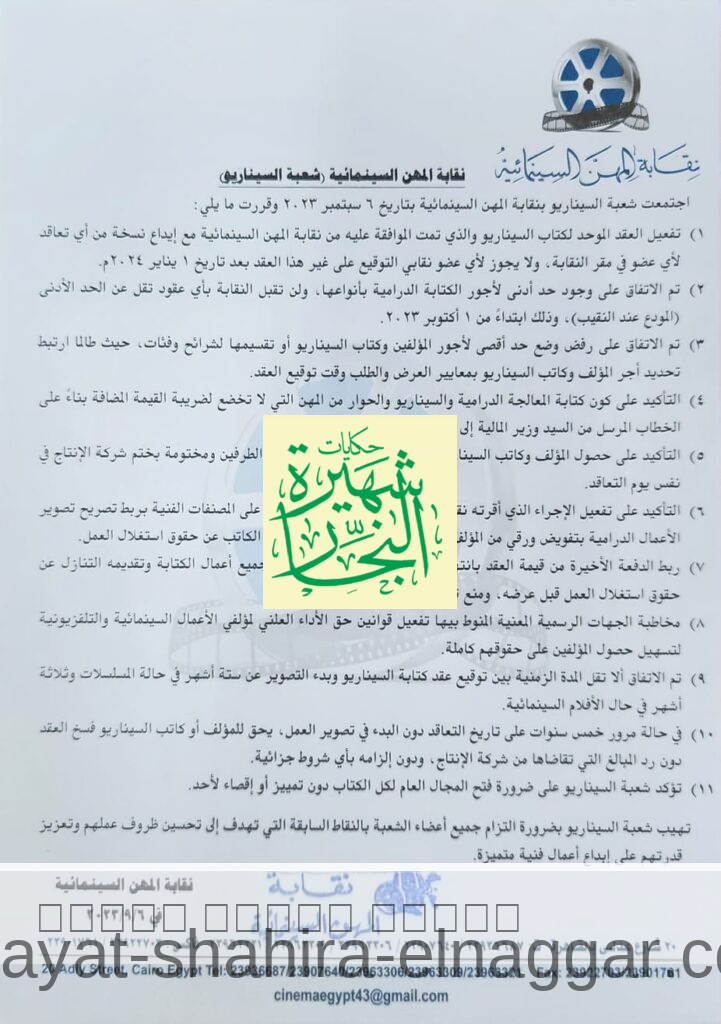 نقابة المهن السينمائية
نقابة المهن السينمائية (شعبة السيناريو)
اجتمعت شعبة السيناريو بنقابة المهن السينمائية بتاريخ ٦ سبتمبر ٢٠٢٣ وقررت ما يلي:
١) تفعيل العقد الموحد لكتاب السيناريو والذي تمت الموافقة عليه من نقابة المهن السينمائية مع إيداع نسخة من أي تعاقد
لأي عضو في مقر النقابة، ولا يجوز لأي عضو نقابي التوقيع على غير هذا العقد بعد تاريخ ١ يناير ٢٠٢٤م.
٢) تم الاتفاق على وجود حد أدنى لأجور الكتابة الدرامية بأنواعها، ولن تقبل النقابة بأي عقود تقل عن الحد الأدنى
(المودع عند النقيب)، وذلك ابتداءً من ١ أكتوبر ٢٠٢٣.
٣) تم الاتفاق على رفض وضع حد أقصى لأجور المؤلفين وكتاب السيناريو أو تقسيمها لشرائح وفئات، حيث طالما ارتبط
تحديد أجر المؤلف وكاتب السيناريو بمعايير العرض والطلب وقت توقيع العقد.
٤) التأكيد على كون كتابة المعالجة الدرامية والسيناريو والحوار من المهن التي لا تخضع لضريبة القيمة المضافة بناءً على
الخطاب المرسل من السيد وزير المالية إلى
٥) التأكيد على حصول المؤلف وكاتب الطرفين ومختومة بختم شركة الإنتاج في
نفس يوم التعاقد.
٦) التأكيد على تفعيل الإجراء الذي أقرته على المصنفات الفنية بربط تصريح تصوير
الأعمال الدرامية بتفويض ورقي من الكاتب عن حقوق استغلال العمل.
٧) ربط الدفعة الأخيرة من قيمة العقد جميع أعمال الكتابة وتقديمه التنازل عن
حقوق استغلال العمل قبل عرضه، ومنع
٨) مخاطبة الجهات الرسمية المعنية المنوط بيها تفعيل قوانين حق الأداء العلني لمؤلفي الأعمال السينمائية والتلفزيونية
لتسهيل حصول المؤلفين على حقوقهم كاملة.
٩) تم الاتفاق ألا تقل المدة الزمنية بين توقيع عقد كتابة السيناريو وبدء التصوير عن ستة أشهر في حالة المسلسلات وثلاثة
أشهر في حال الأفلام السينمائية.
١٠) في حالة مرور خمس سنوات على تاريخ التعاقد دون البدء في تصوير العمل، يحق للمؤلف أو كاتب السيناريو فسخ العقد
دون رد المبالغ التي تقاضاها من شركة الإنتاج، ودون إلزامه بأي شروط جزائية.
١١) تؤكد شعبة السيناريو على ضرورة فتح المجال العام لكل الكتاب دون تمييز أو إقصاء لأحد.
تهيب شعبة السيناريو بضرورة التزام جميع أعضاء الشعبة بالنقاط السابقة التي تهدف إلى تحسين ظروف عملهم وتعزيز
قدرتهم على إبداع أعمال فنية متميزة.
حكايات
شهيرة
النجار
نقابة المهن السينمائية
في ٢٠٢٣/٩/٦
نقابة
المهن السينمائية
ayat-shahira-elnaggar.co
20 Adly Street, Cairo Egypt Tel: 23936687/23907640/23963306/23963309/23963301 Fax: 23902703/23901761
cinemaegypt43@gmail.com